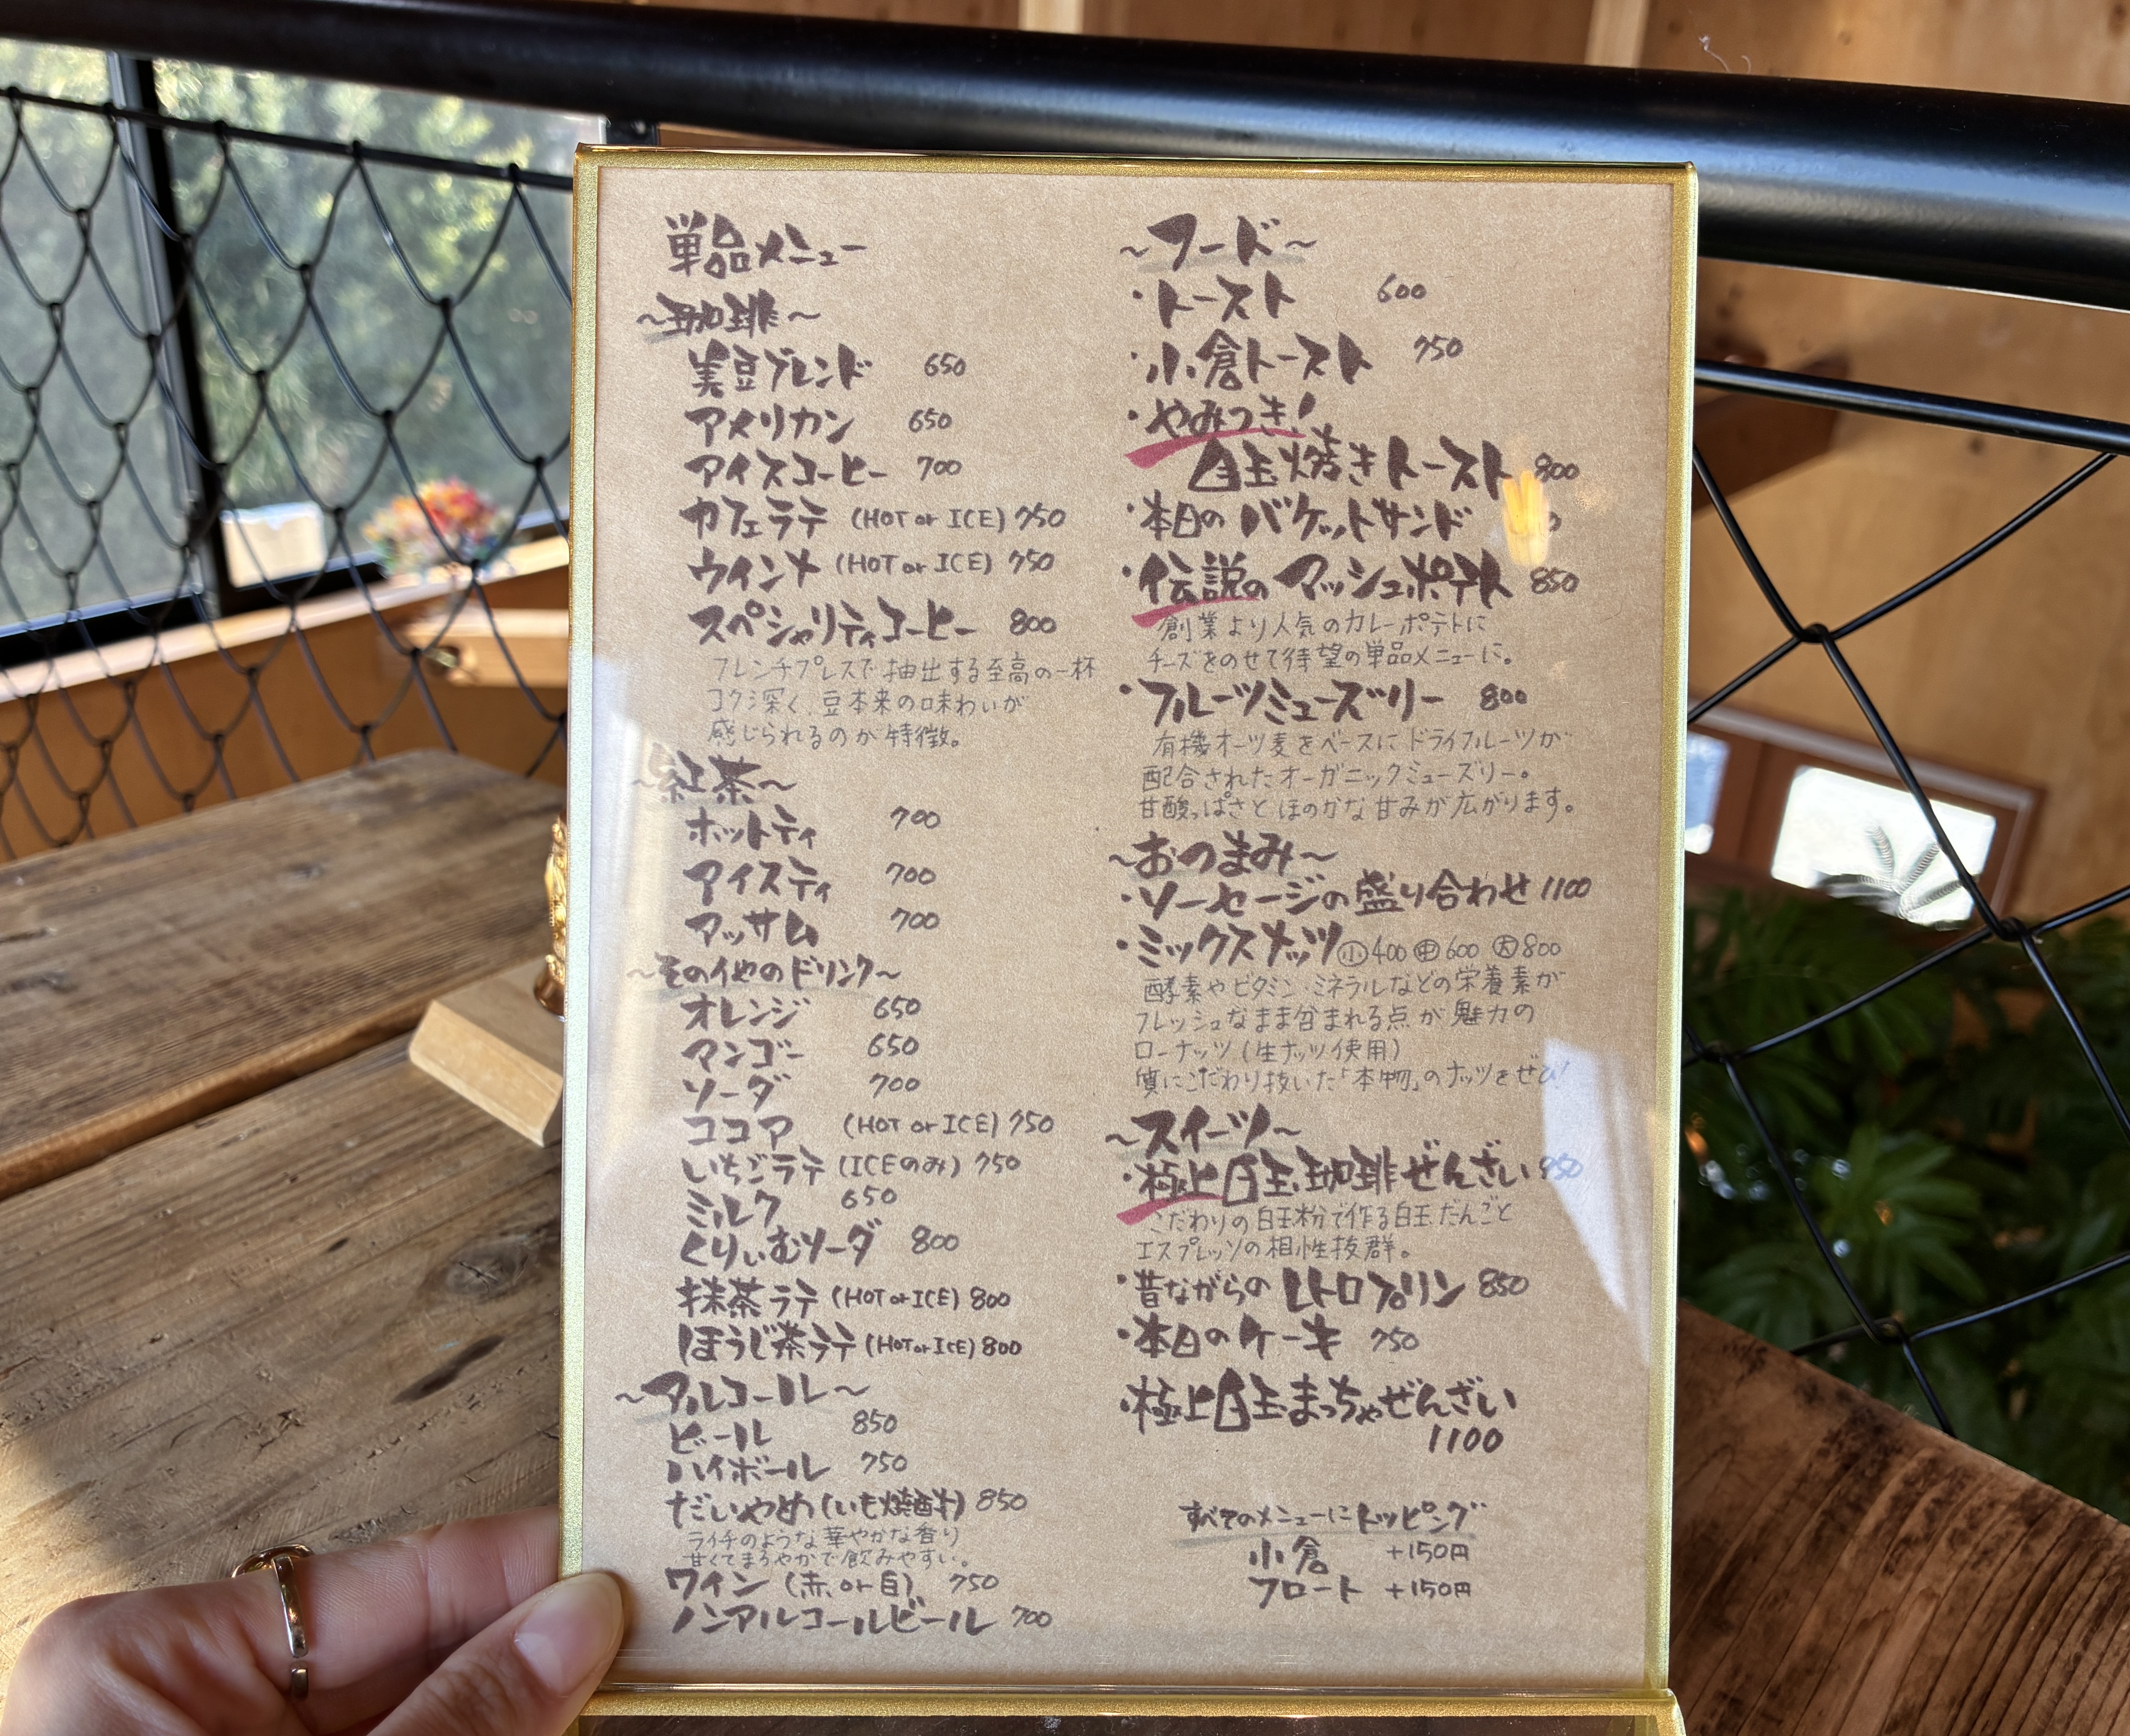 単品メニュー
~珈琲~
美豆ブレンド 650
アメリカン 650
アイスコーヒー 700
カフェラテ (HOT or ICE) 750
ウインナ (HOT or ICE) 750
スペシャリティコーヒー 800
フレンチプレスで抽出する至高の一杯
コク深く、豆本来の味わいが
感じられるのが特徴。
~紅茶~
ホットティ 700
アイスティ 700
アッサム 700
~その他のドリンク~
オレンジ 650
マンゴー 650
ソーダ 700
ココア (HOT or ICE) 750
いちごラテ (ICEのみ) 750
ミルク 650
くりぃむソーダ 800
抹茶ラテ (HOT or ICE) 800
ほうじ茶ラテ (HOT or ICE) 800
~アルコール~
ビール 850
ハイボール 750
だいやめ (いも焼酎) 850
ライチのような華やかな香り
甘くてまろやかで飲みやすい。
ワイン (赤 or 白) 750
ノンアルコールビール 700
~フード~
・トースト 600
・小倉トースト 750
・やみつき!
目玉焼きトースト 800
・本日のバケットサンド
・伝説のマッシュポテト 850
創業より人気のカレーポテトに
チーズをのせて待望の単品メニューに。
・フルーツミューズリー 800
有機オーツ麦をベースにドライフルーツが
配合されたオーガニックミューズリー。
甘酸っぱさとほのかな甘みが広がります。
~おつまみ~
・ソーセージの盛り合わせ 1100
・ミックスナッツ ㊙小 400 ㊥ 600 大 800
酵素やビタミン・ミネラルなどの栄養素が
フレッシュなまま含まれる点が魅力の
ローナッツ (生ナッツ使用)
質にこだわり抜いた「本物」のナッツをぜひ!
~スイーツ~
・極上白玉珈琲ぜんざい
こだわりの白玉粉で作る白玉だんごと
エスプレッソの相性抜群。
・昔ながらのレトロプリン 850
・本日のケーキ 750
・極上白玉まっちゃぜんざい
1100
すべてのメニューにトッピング
小倉 +150円
フロート +150円